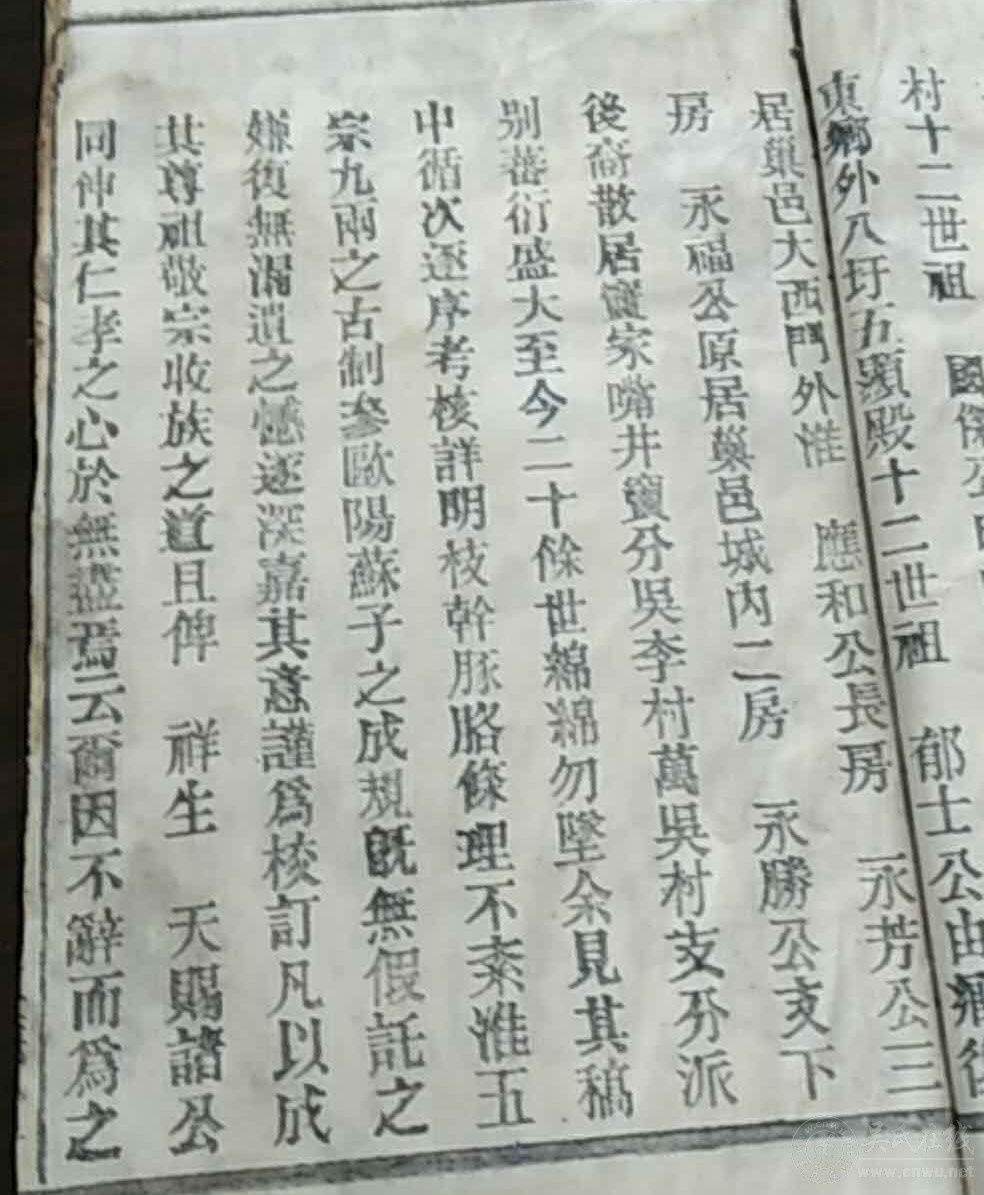 村十二世祖 國保公
東鄉外八圩五顯殿十二世祖 郁士公由
居巢邑大西門外淮 應和公長房 永芳公三
房 永福公原居巢邑城内二房 永勝公支下
後裔散居竇家嘴井竇分吳李村萬吳村支分派
别蕃衍盛大至今二十餘世綿綿勿墜余見其稿
中循次逐序考核詳明枝幹脉胳條理不紊准五
宗九兩之古制參歐陽蘇子之成規既無假託之
嫌復無漏遺之憾遂深嘉其意謹爲校訂凡以成
其尊祖敬宗收族之道且俾 祥生 天賜諸公
同伸其仁孝之心於無盡焉云爾因不辭而爲之
吳氏在綫
www.cnwu.net